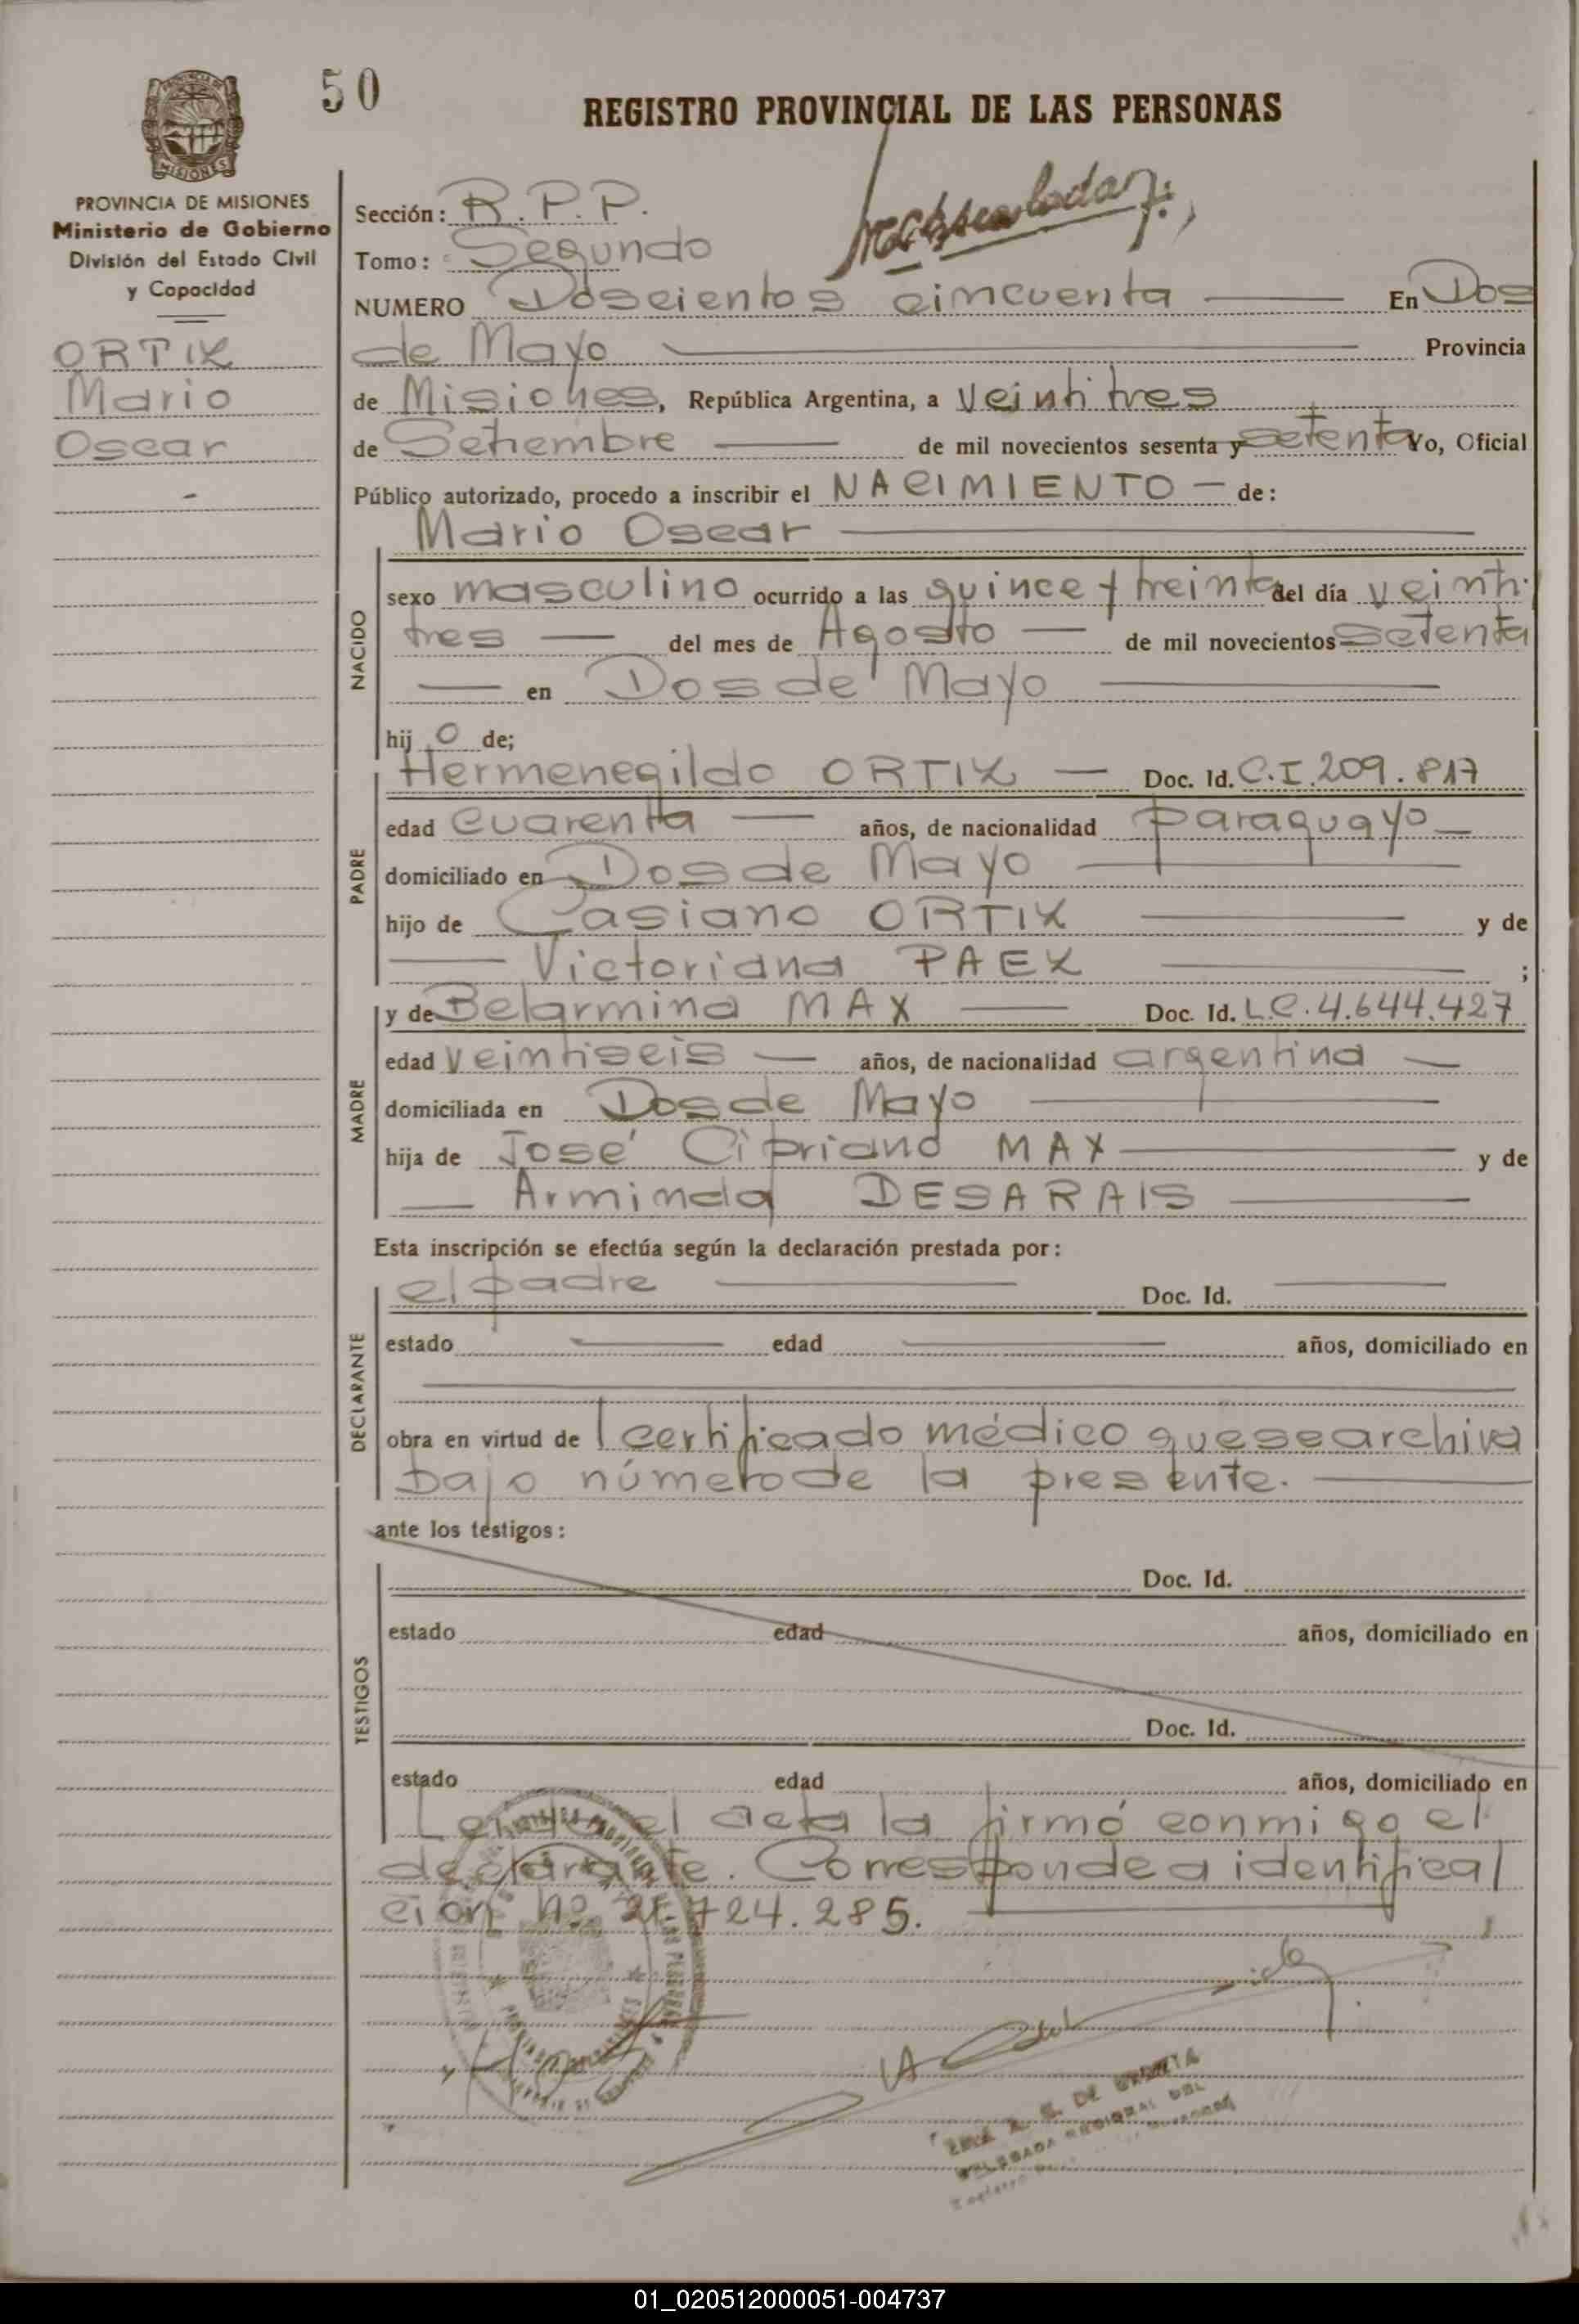 50
REGISTRO PROVINCIAL DE LAS PERSONAS
MISIONES
PROVINCIA DE MISIONES
Ministerio de Gobierno
División del Estado Civil
y Capacidad
ORTIZ
Mario
Oscar
Sección: R.P.P.
Tomo: Segundo
NUMERO Doscientos cincuenta En Dos
de Mayo Provincia
de Misiones, República Argentina, a veintitres
de Setiembre de mil novecientos sesenta y setenta Yo, Oficial
Público autorizado, procedo a inscribir el NACIMIENTO - de:
Mario Oscar
NACIDO
sexo masculino ocurrido a las quince y treinta del día veinti
tres del mes de Agosto de mil novecientos setenta
en Dos de Mayo
hij o de;
PADRE
Hermenegildo ORTIZ Doc. Id. C.I. 209.817
edad cuarenta años, de nacionalidad paraguayo
domiciliado en Dos de Mayo
hijo de Casiano ORTIZ y de
Victoriana PAEZ ;
MADRE
y de Belarmina MAX Doc. Id. L.C. 4.644.427
edad veintiseis años, de nacionalidad argentina
domiciliada en Dos de Mayo
hija de José Cipriano MAX y de
Arminda DESARAIS
Esta inscripción se efectúa según la declaración prestada por:
DECLARANTE
el padre Doc. Id.
estado edad años, domiciliado en
obra en virtud de l certificado médico que se archiva
bajo número de la presente.
ante los testigos:
TESTIGOS
Doc. Id.
estado edad años, domiciliado en
Doc. Id.
estado edad años, domiciliado en
el acta la firmó conmigo el
declarante. Corresponde a identifical
cion nº 21.724.285.
DE
DELEGADA REGIONAL DEL
01_020512000051-004737